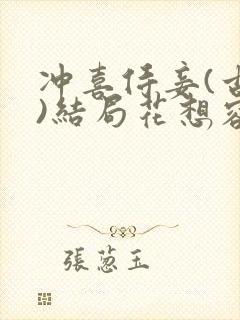 冲喜侍妾(古
)結局花想容
張蔥玉